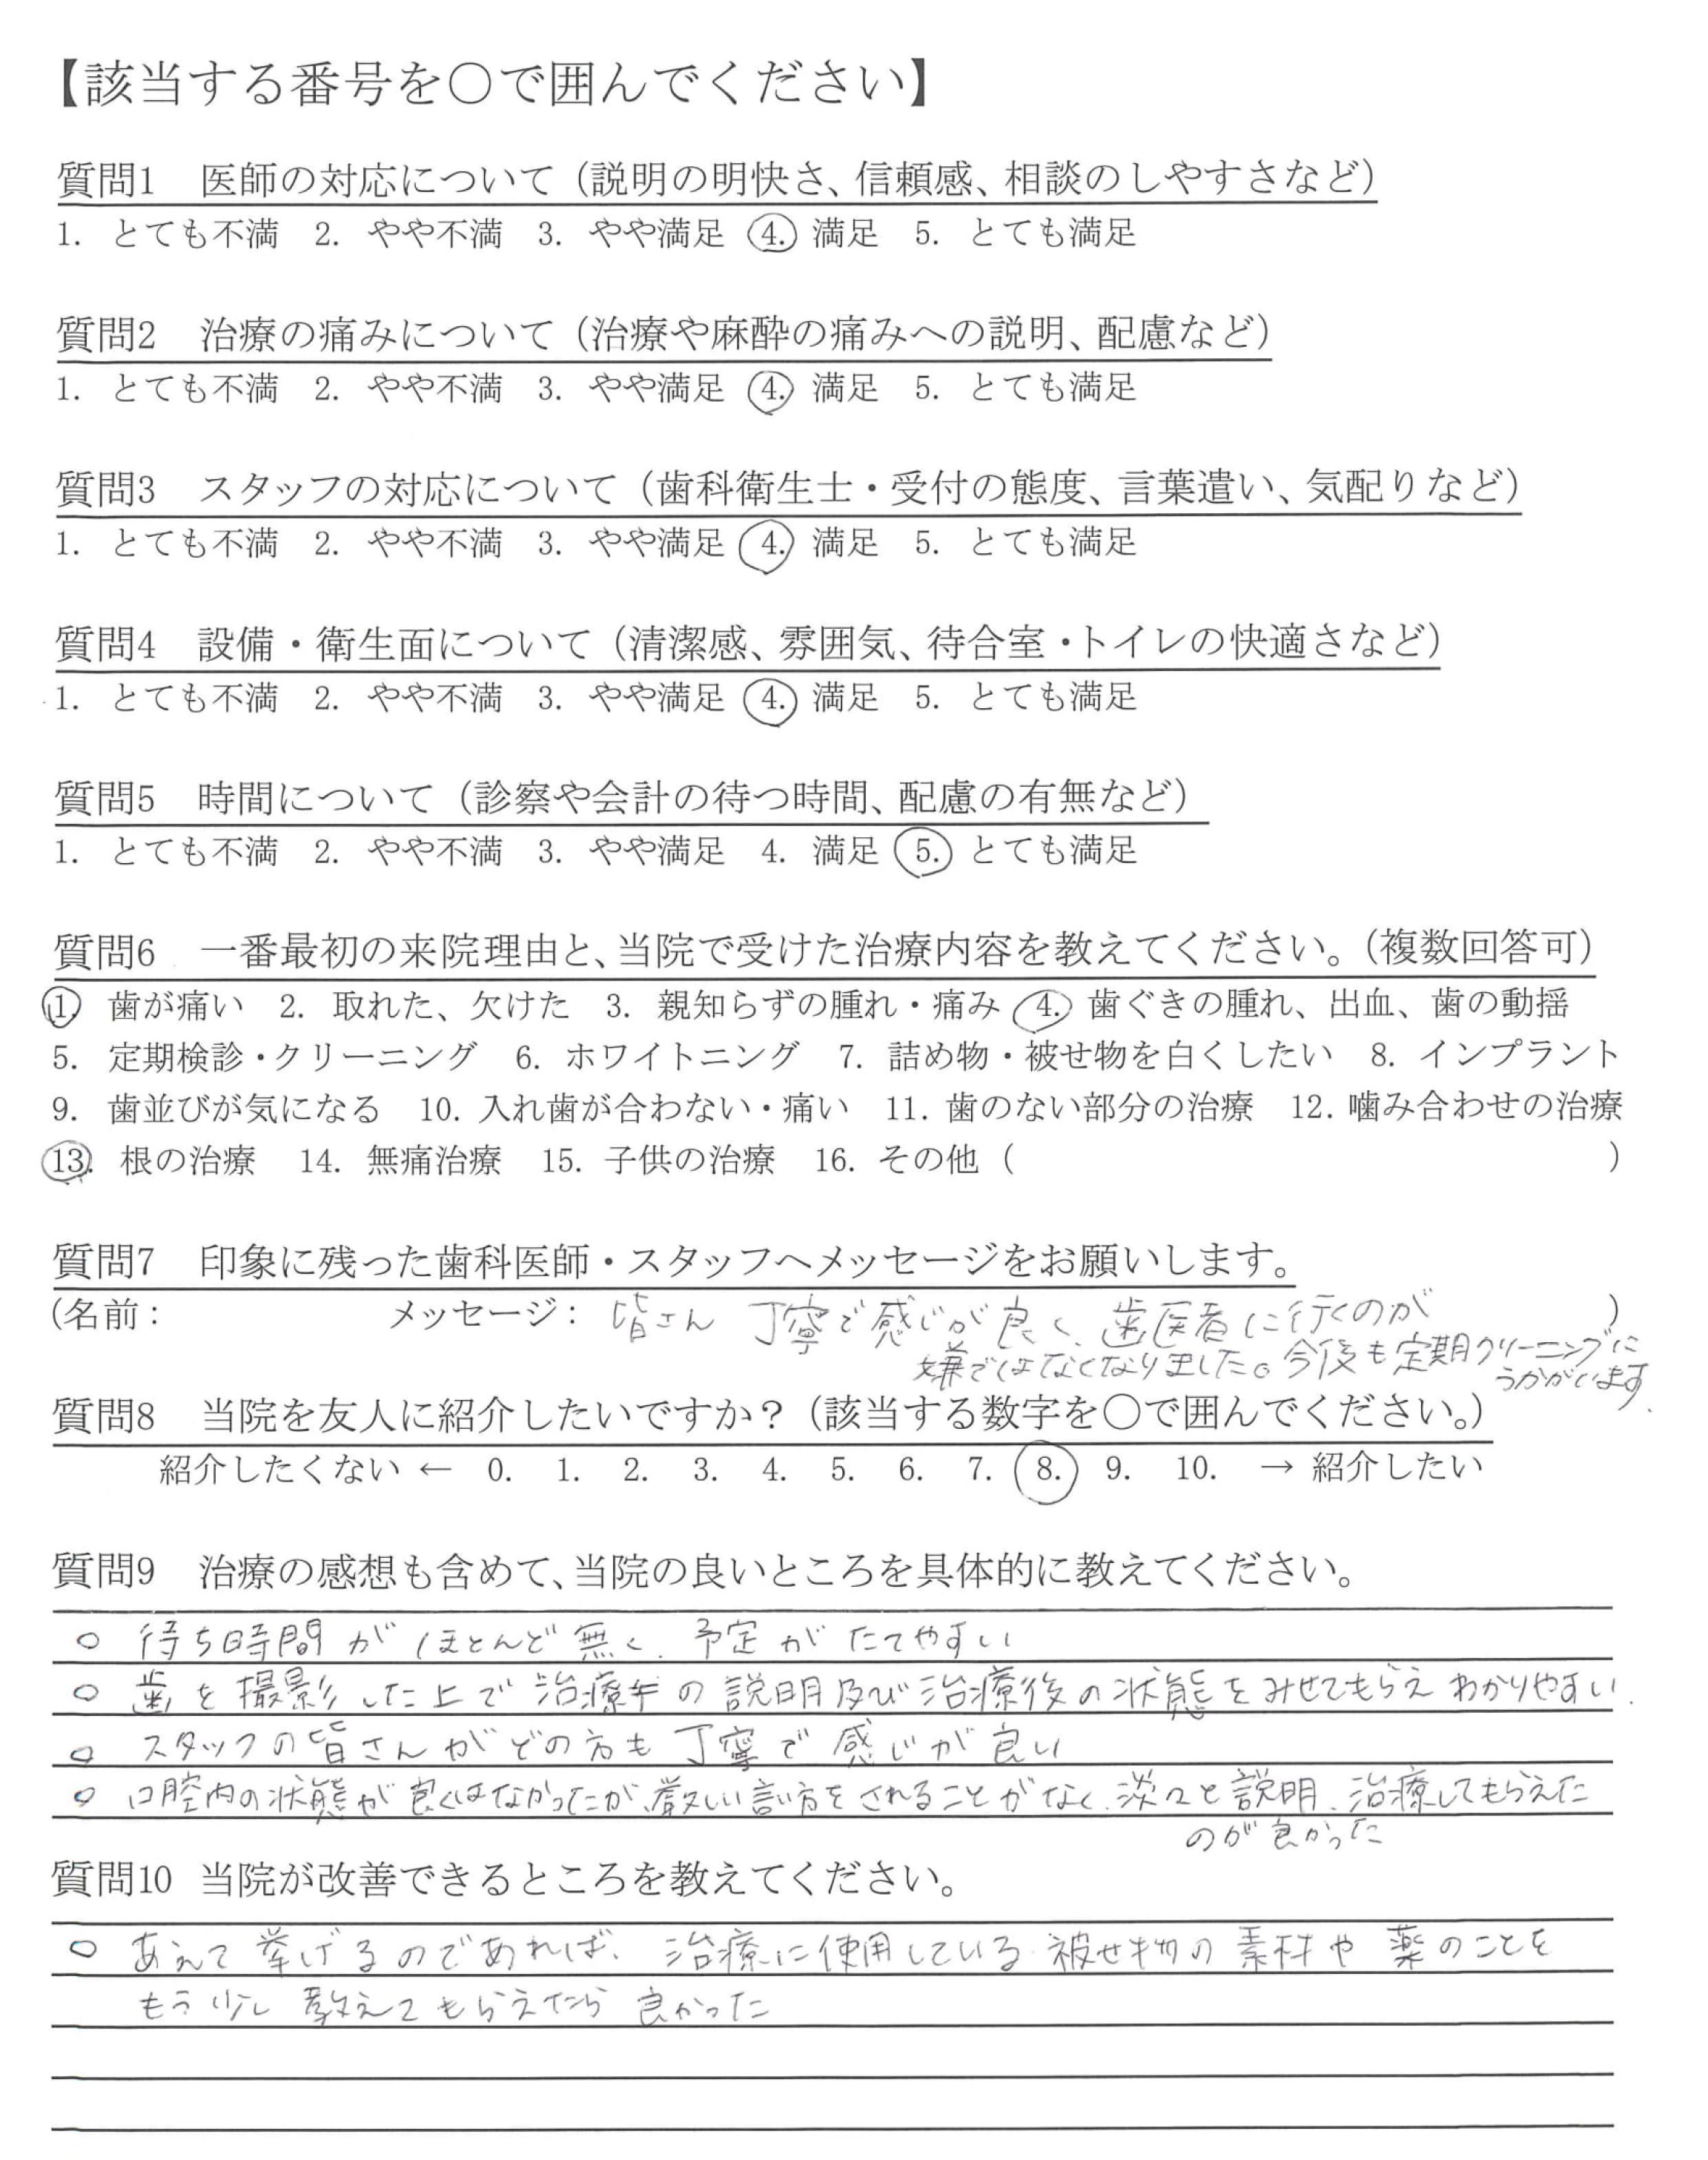 【該当する番号を○で囲んでください】
質問1 医師の対応について（説明の明快さ、信頼感、相談のしやすさなど）
1. とても不満 2. やや不満 3. やや満足 4. 満足 5. とても満足
質問2 治療の痛みについて（治療や麻酔の痛みへの説明、配慮など）
1. とても不満 2. やや不満 3. やや満足 4. 満足 5. とても満足
質問3 スタッフの対応について（歯科衛生士・受付の態度、言葉遣い、気配りなど）
1. とても不満 2. やや不満 3. やや満足 4. 満足 5. とても満足
質問4 設備・衛生面について（清潔感、雰囲気、待合室・トイレの快適さなど）
1. とても不満 2. やや不満 3. やや満足 4. 満足 5. とても満足
質問5 時間について（診察や会計の待つ時間、配慮の有無など）
1. とても不満 2. やや不満 3. やや満足 4. 満足 5. とても満足
質問6 一番最初の来院理由と、当院で受けた治療内容を教えてください。（複数回答可）
1. 歯が痛い 2. 取れた、欠けた 3. 親知らずの腫れ・痛み 4. 歯ぐきの腫れ、出血、歯の動揺
5. 定期検診・クリーニング 6. ホワイトニング 7. 詰め物・被せ物を白くしたい 8. インプラント
9. 歯並びが気になる 10. 入れ歯が合わない・痛い 11. 歯のない部分の治療 12. 噛み合わせの治療
13. 根の治療 14. 無痛治療 15. 子供の治療 16. その他（ ）
質問7 印象に残った歯科医師・スタッフへメッセージをお願いします。
（名前： メッセージ： 皆さん 丁寧で感じが良く、歯医者に行くのが ）
嫌ではなくなりました。今後も定期クリーニングに
うかがいます。
質問8 当院を友人に紹介したいですか？（該当する数字を○で囲んでください。）
紹介したくない ← 0. 1. 2. 3. 4. 5. 6. 7. 8. 9. 10. → 紹介したい
質問9 治療の感想も含めて、当院の良いところを具体的に教えてください。
○ 待ち時間がほとんど無く、予定がたてやすい
○ 歯を撮影した上で治療の説明及び治療後の状態をみせてもらえわかりやすい。
○ スタッフの皆さんがどの方も丁寧で感じが良い
○ 口腔内の状態が良くはなかったが、厳しい言い方をされることがなく、淡々と説明、治療してもらえた
のが良かった
質問10 当院が改善できるところを教えてください。
○ あえて挙げるのであれば、治療に使用している被せ物の素材や薬のことを
もう少し教えてもらえたら良かった